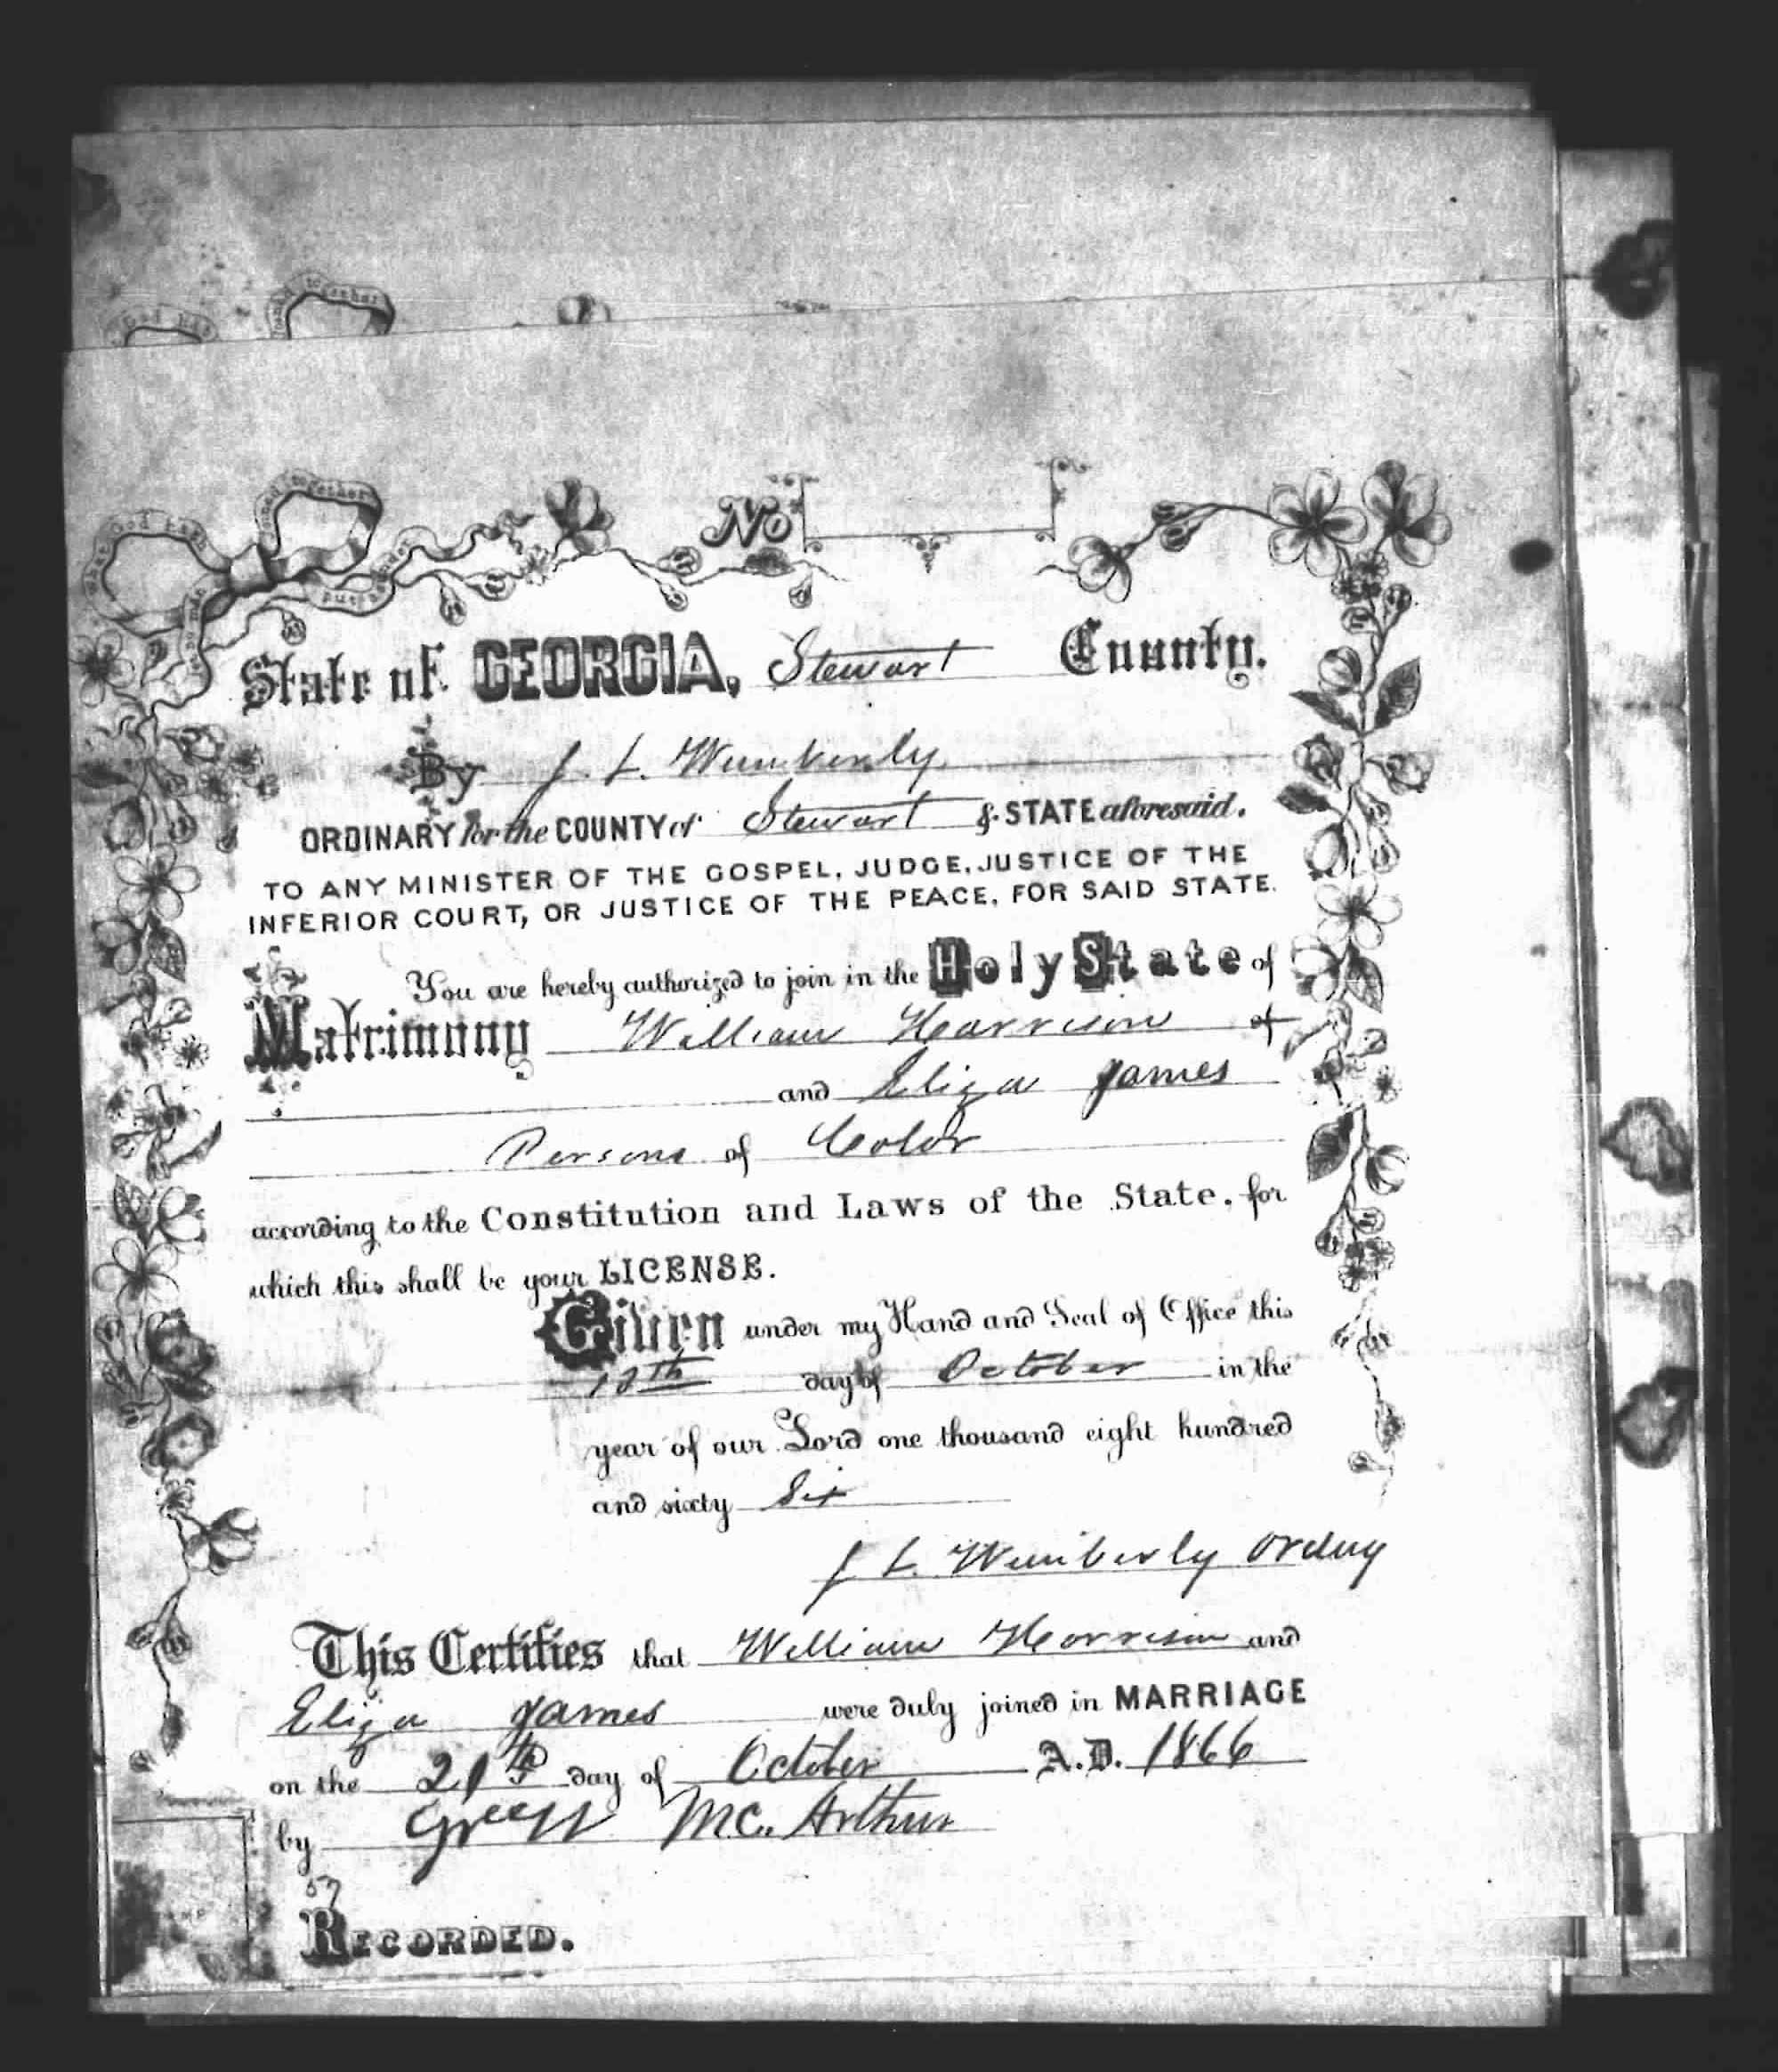 God hath
together
What God hath joined together
let no man put asunder
No
State of GEORGIA, Stewart County.
By J. L. Wimberly
ORDINARY for the COUNTY of Stewart & STATE aforesaid.
TO ANY MINISTER OF THE GOSPEL, JUDGE, JUSTICE OF THE
INFERIOR COURT, OR JUSTICE OF THE PEACE, FOR SAID STATE.
You are hereby authorized to join in the Holy State of
Matrimony William Harrison of
and Eliza James
Persons of Color
according to the Constitution and Laws of the State, for
which this shall be your LICENSE.
Given under my Hand and Seal of Office this
12th day of October in the
year of our Lord one thousand eight hundred
and sixty Six
J L. Wimberly Ordny
This Certifies that William Harrison and
Eliza James were duly joined in MARRIAGE
on the 21 day of October A.D. 1866
by Green Mc. Arthur
57
RECORDED.